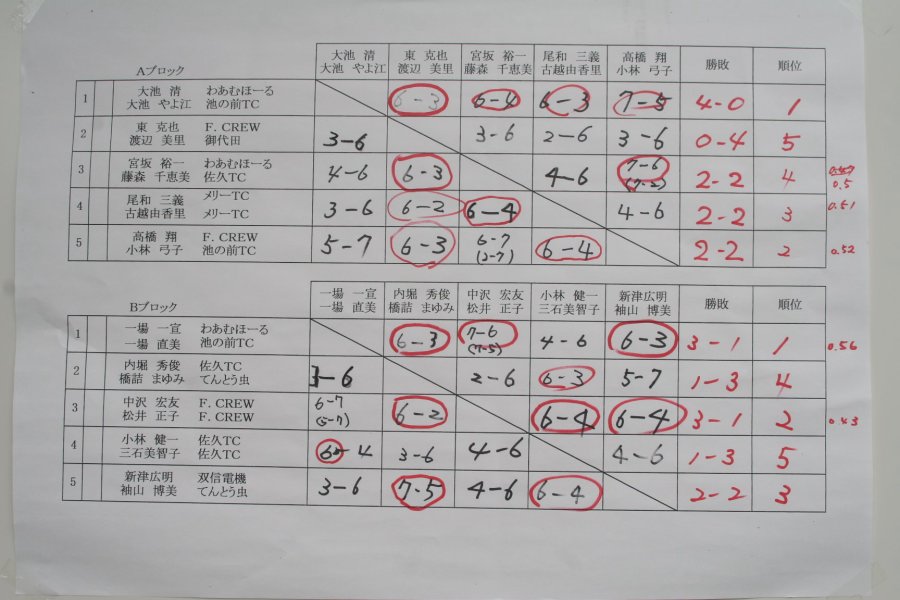 Aブロック
大池 清 東 克也 宮坂 裕一 尾和 三義 高橋 翔 勝敗 順位
大池 やよ江 渡辺 美里 藤森 千恵美 古越由香里 小林 弓子
1 大池 清 わあむほーる 6-3 6-4 6-3 7-5 4-0 1
大池 やよ江 池の前TC
2 東 克也 F. CREW 3-6 3-6 2-6 3-6 0-4 5
渡辺 美里 御代田
3 宮坂 裕一 わあむほーる 4-6 6-3 4-6 7-6 2-2 4
藤森 千恵美 佐久TC (7-2) 0.5
4 尾和 三義 メリーTC 3-6 6-2 6-4 4-6 2-2 3 0.51
古越由香里 メリーTC
5 高橋 翔 F. CREW 5-7 6-3 6-7 6-4 2-2 2 0.52
小林 弓子 池の前TC (2-7)
Bブロック
一場 一宣 内堀 秀俊 中沢 宏友 小林 健一 新津広明 勝敗 順位
一場 直美 橋詰 まゆみ 松井 正子 三石美智子 袖山 博美
1 一場 一宣 わあむほーる 6-3 7-6 4-6 6-3 3-1 1 0.56
一場 直美 池の前TC (7-5)
2 内堀 秀俊 佐久TC 3-6 2-6 6-3 5-7 1-3 4
橋詰 まゆみ てんとう虫
3 中沢 宏友 F. CREW 6-7 6-2 6-4 6-4 3-1 2 0.43
松井 正子 F. CREW (5-7)
4 小林 健一 佐久TC 6-4 3-6 4-6 4-6 1-3 5
三石美智子 佐久TC
5 新津広明 双信電機 3-6 7-5 4-6 6-4 2-2 3
袖山 博美 てんとう虫